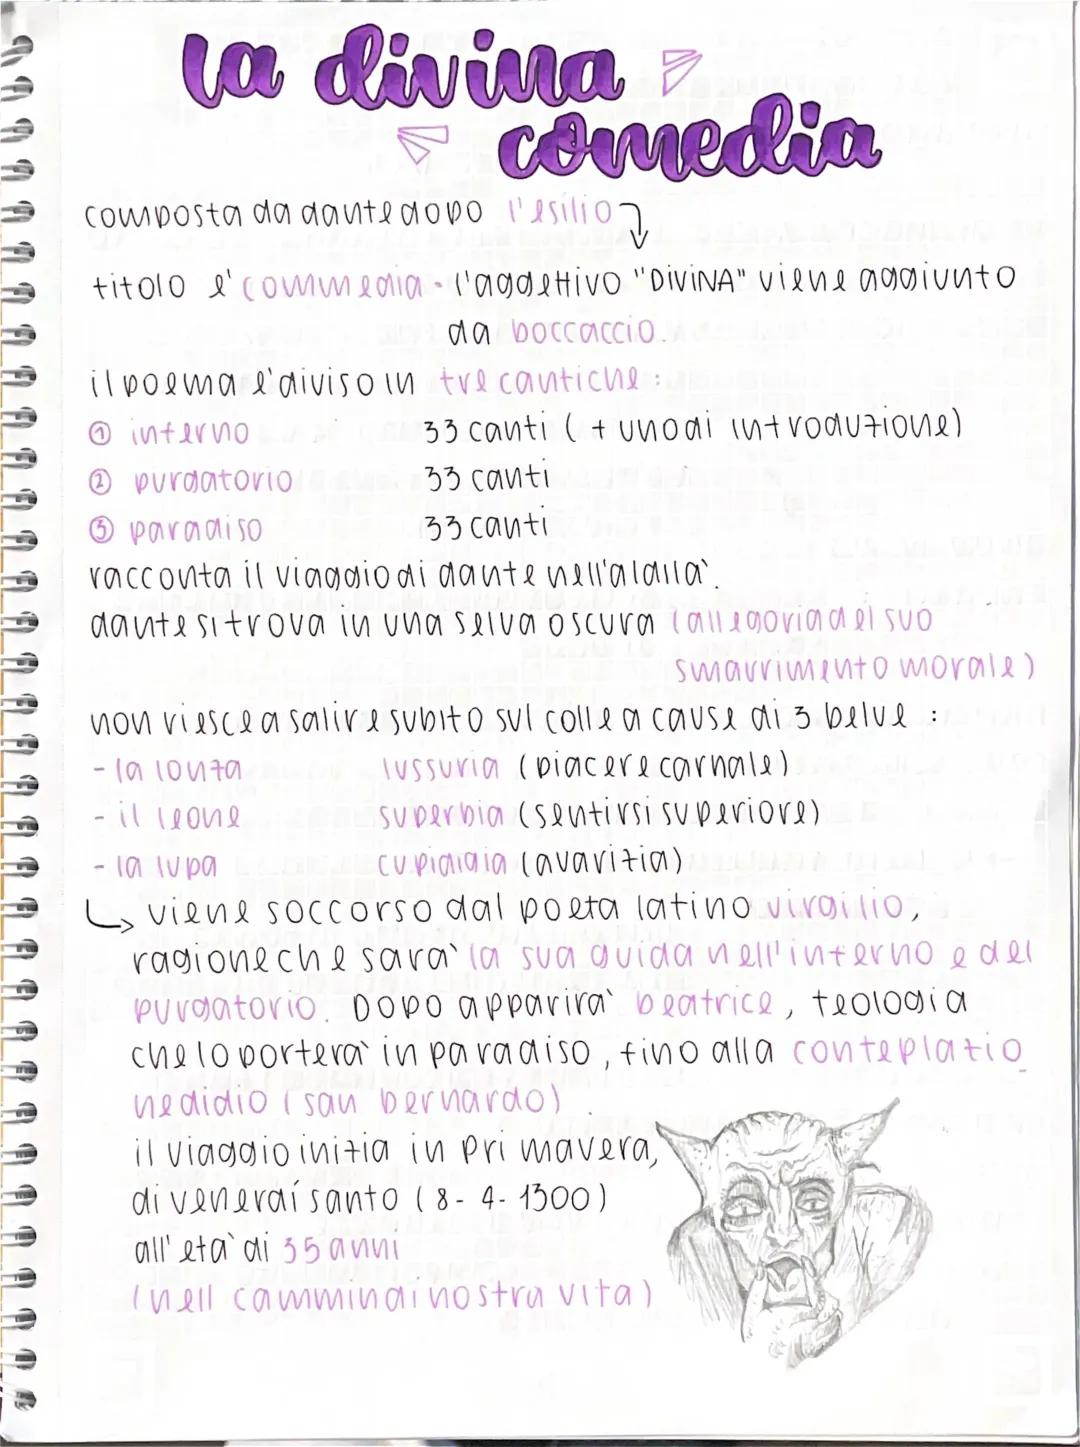 la divina
comedia
composta da dante dopo l'esilio
titolo e' commedia - l'aggettivo "DIVINA" viene aggiunto
da boccaccio.
il poema e' diviso in tre cantiche:
① inferno 33 canti (+ uno di introduzione)
② purgatorio 33 canti
③ paradiso 33 canti
racconta il viaggio di dante nell'aldila`.
dante si trova in una selva oscura (allegoria del suo
smarrimento morale)
non riesce a salire subito sul colle a cause di 3 belve :
- la lonza lussuria (piacere carnale)
- il leone superbia (sentirsi superiore)
- la lupa cupidigia (avarizia)
viene soccorso dal poeta latino virgilio,
ragione che sara` la sua guida nell'inferno e del
purgatorio. Dopo apparira` beatrice, teologia
che lo portera` in paradiso, fino alla conteplatio
ne di dio (san bernardo).
il viaggio inizia in primavera,
di venerdí santo (8-4-1300)
all'eta` di 35 anni
(nell cammin di nostra vita)